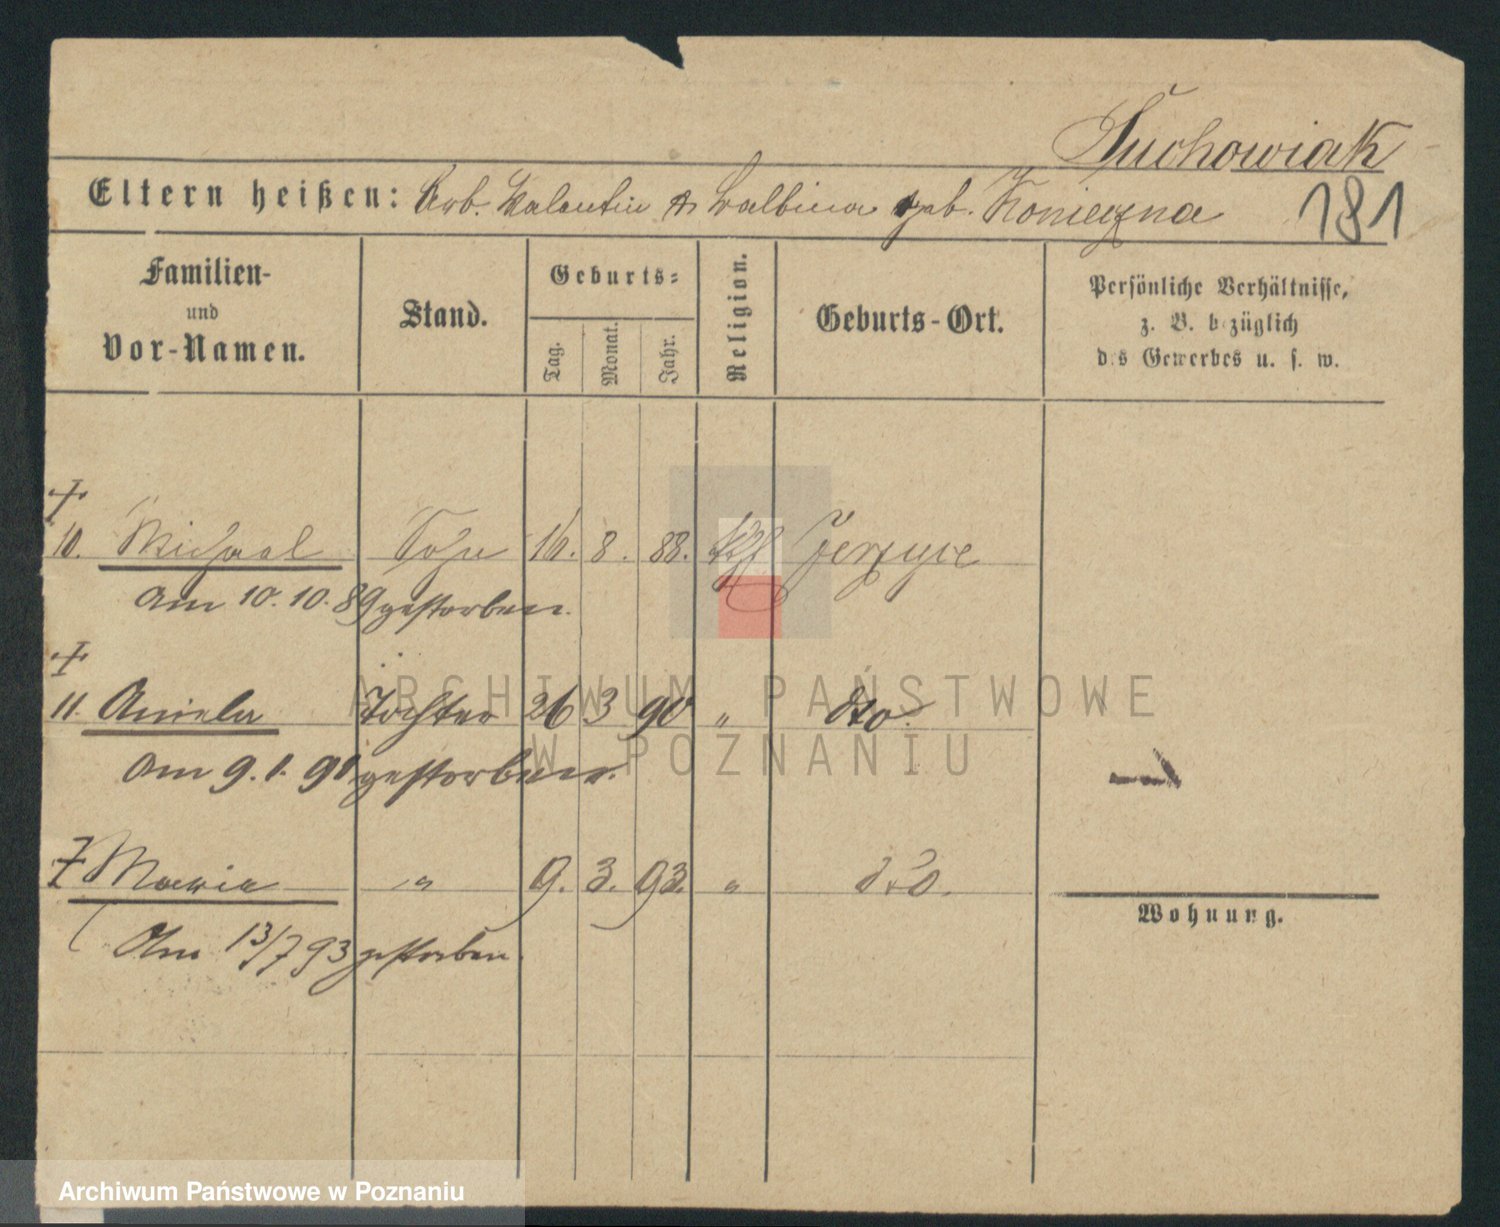 Suchowiak
Eltern heißen: Arb. Valentin & Balbina geb. Konieczna 181
Familien-
und
Vor-Namen.
Stand.
Geburts-
Tag.
Monat.
Jahr.
Religion.
Geburts-Ort.
Persönliche Verhältnisse,
z. B. bezüglich
des Gewerbes u. s. w.
10. Michael Sohn 16. 8. 88. kth Jerzyce
am 10. 10. 89 gestorben.
11. Aniela Tochter 26 3 90 " dto.
am 9. 1. 91 gestorben.
Maria " 9. 3. 93. " dto.
Am 13/7 93 gestorben.
Wohnung.
ARCHIWUM PAŃSTWOWE
W POZNANIU
Archiwum Państwowe w Poznaniu